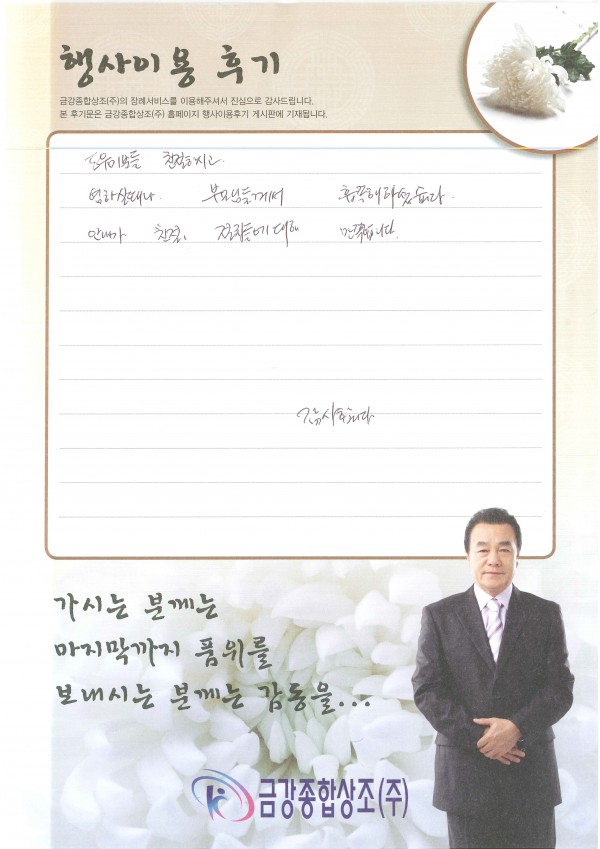 행사이용 후기
금강종합상조(주)의 장례서비스를 이용해주셔서 진심으로 감사드립니다.
본 후기문은 금강종합상조(주) 홈페이지 행사이용후기 게시판에 기재됩니다.
도우미분들 친절하시고
염하실때나 부모님들께서 흡족해하셨습니다.
안내가 친절, 절차등에 대해 만족합니다.
감사합니다
가시는 분께는
마지막까지 품위를
보내시는 분께는 감동을...
금강종합상조(주)